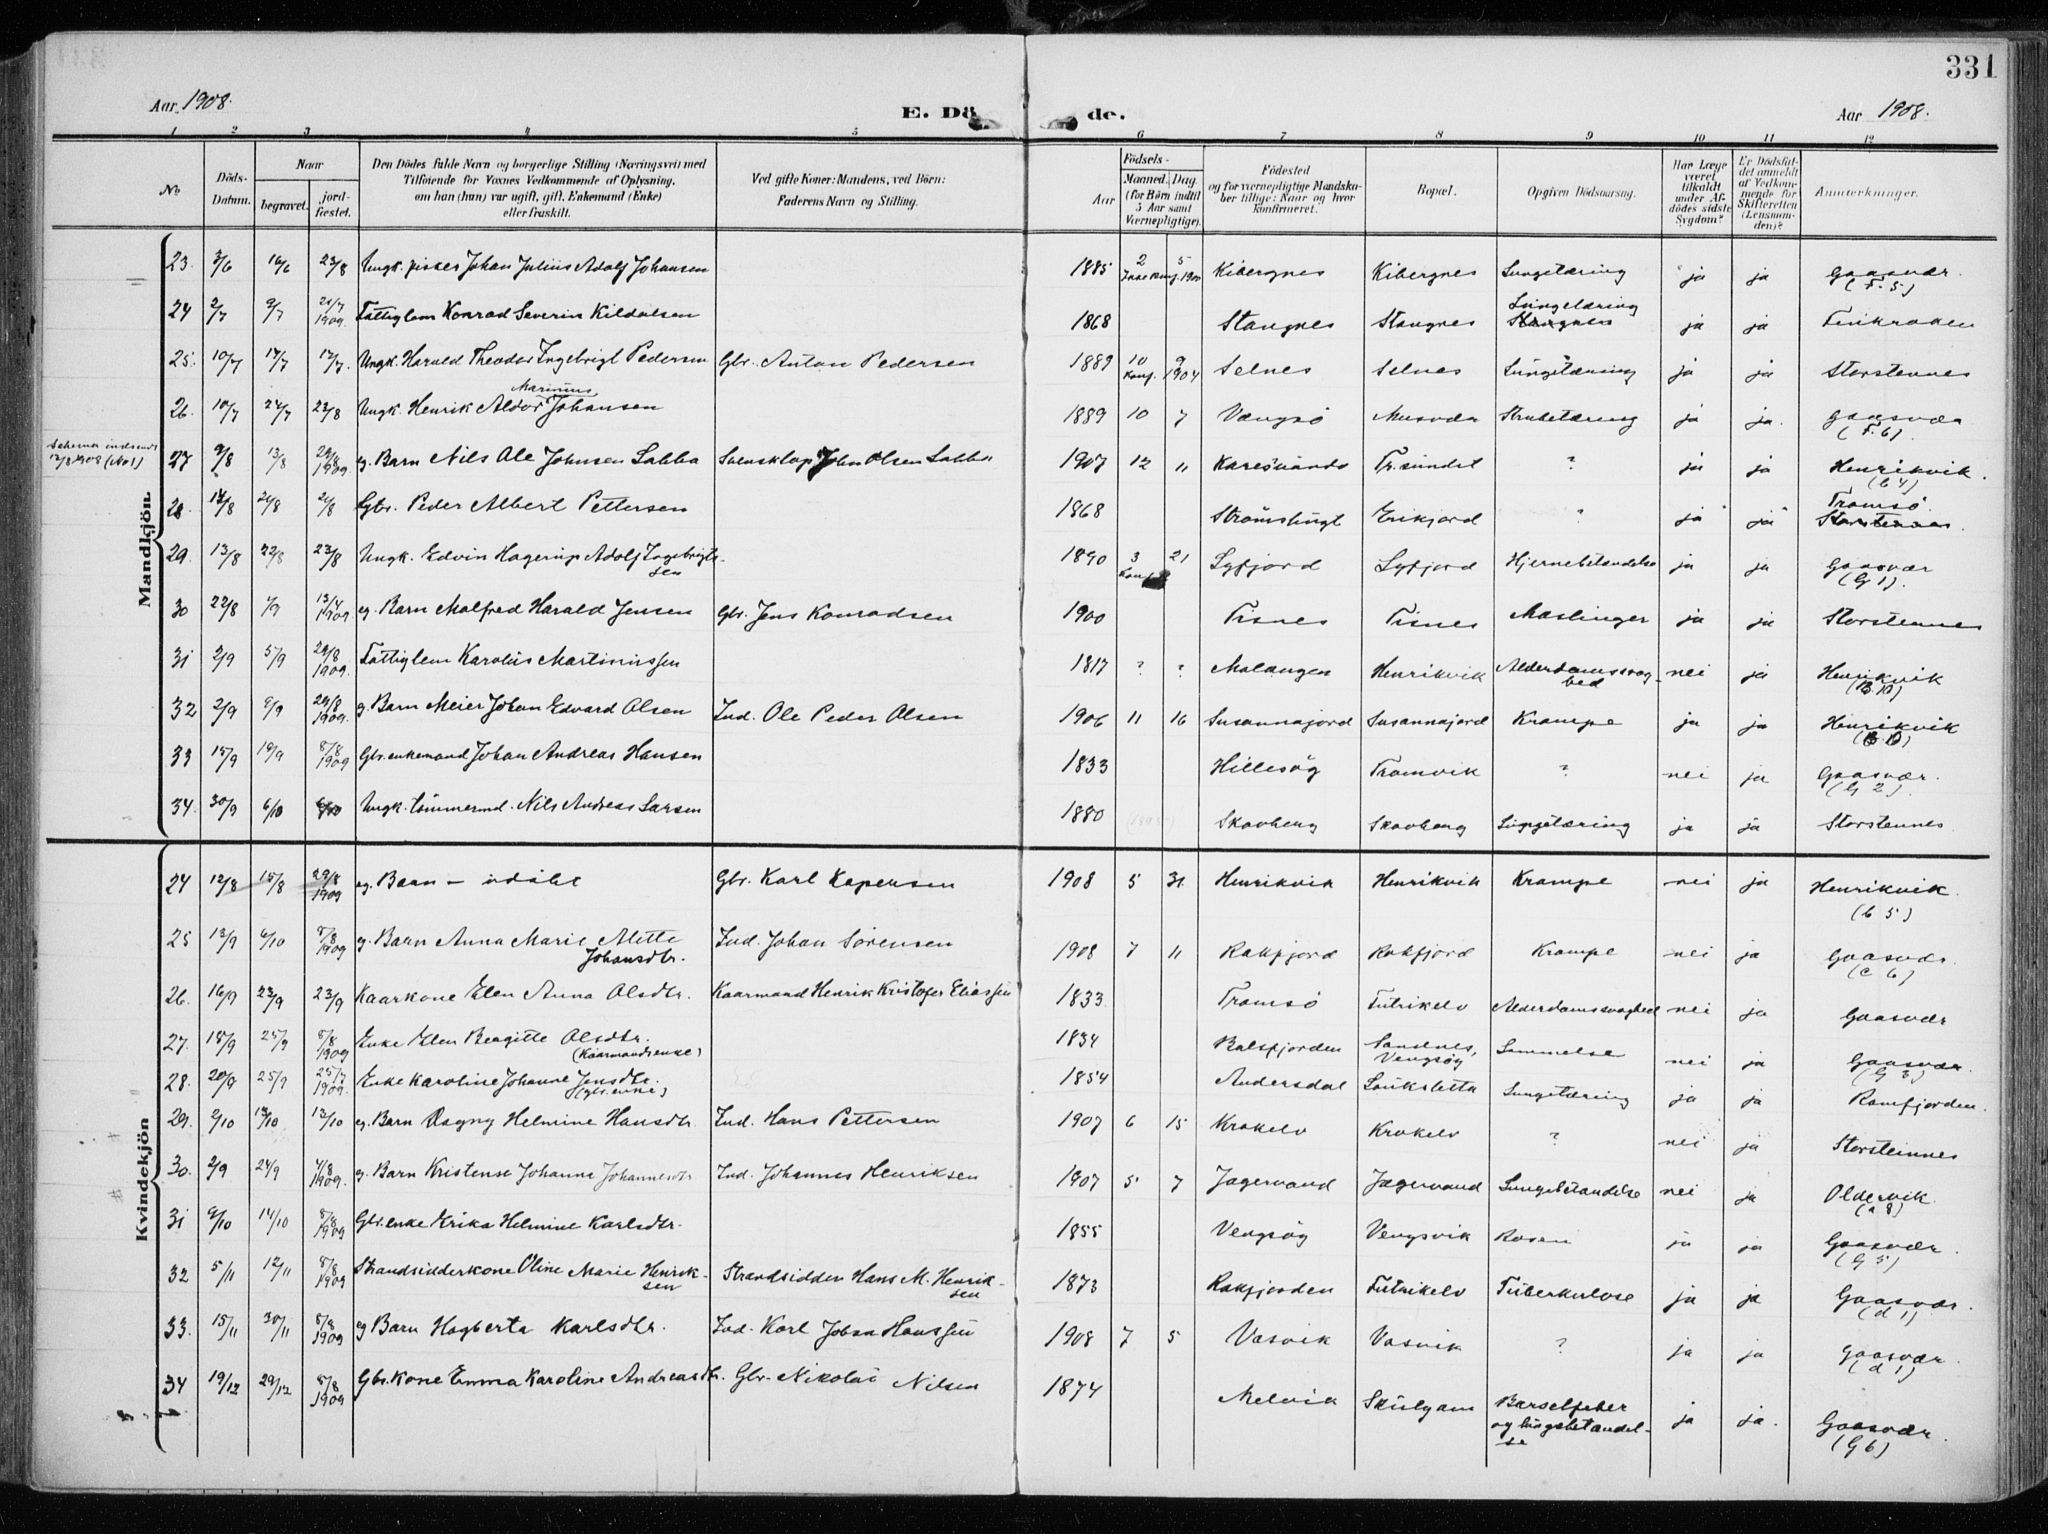 331
Aar 1908. E. Dö de. Aar 1908.
1 2 3 4 5 6 7 8 9 10 11 12
No
Döds-Datum.
Naar
begravet. jordfæstet.
Den Dödes fulde Navn og borgerlige Stilling (Næringsvei) med
Tilföiende for Voxnes Vedkommende af Oplysning,
om han (hun) var ugift, gift, Enkemand (Enke)
eller fraskilt.
Ved gifte Koner: Mandens, ved Börn:
Faderens Navn og Stilling.
Födsels-
Aar Maaned. Dag.
(for Börn indtil 5 Aar samt Værnepligtige).
Födested
og for værnepligtige Mandskaber tillige: Naar og hvor konfirmeret.
Bopæl.
Opgiven Dödsaarsag.
Har Læge været tilkaldt under Afdödes sidste Sygdom?
Er Dödsfaldet anmeldt af Vedkommende for Skifteretten (Lensmanden)?
Anmærkninger.
Mandkjön
23. 3/6 16/6 23/8 Ungk. fisker Johan Julius Adolf Johansen 1885 2 5 Kibergnes Kibergnes Lungetæring ja ja Gaasvær (F. 5)
24 2/7 9/7 21/7 1909. Fattiglem Konrad Severin Kildalsen 1868 Stangnes Stangnes Lungetæring ja ja Finkroken
25. 10/7 17/7 17/7. Ungk. Harald Theodor Ingebrigt Pedersen Gbr. Anton Pedersen 1889 10 9 Konf. 1904 Selnes Selnes Lungetæring ja ja Storstennes
26. 10/7 24/7 23/8 Ungk. Henrik Aldor Marinius Johansen 1889 10 7 Vengsö Musvær Strubetæring ja ja. Gaasvær (F. 6)
Schema indsendt 12/8 1908 (No 1)
27 9/8 13/8 29/8 1909 eg. Barn Nils Ole Johnsen Labba Svensklap John Olsen Labba 1907 12 11 Karesuando Tr.sundet ? ja ja Henrikvik. (C 4)
28 14/8 21/8 21/8 Gbr. Peder Albert Pettersen 1868 Strömslugt Erikjord ? ja ja Tromsö
29. 13/8 22/8 23/8 Ungk. Edvin Hagerup Adolf Ingebrigtsen 1890 3 21 Konf. Lyfjord Lyfjord Hjernebetændelse ja ja Gaasvær (G 1).
30 22/8 1/9 13/4 1909. eg. Barn Malfred Harald Jensen Gbr. Jens Konradsen 1900 Tisnes Tisnes Mæslinger ja ja Storstennes
31 2/9 5/9 29/8 1909. Fattiglem Karolus Martinussen 1817 ? ? Malangen Henrikvik Alderdomssvaghed nei ja Henrikvik (B 10)
32 2/9 8/9 29/8 1909. eg. Barn Meier Johan Edvard Olsen Ind. Ole Peder Olsen 1906 11 16 Susannajord Susannajord Krampe ja ja Henrikvik
33 15/9 19/9 8/8 1909 Gbr.enkemand Johan Andreas Hansen 1833 Hillesög Tromvik ? nei ja Gaasvær. (G 2).
34. 30/9 6/10 6/10 Ungk. tömmermd. Nils Andreas Larsen 1880 Skavberg Skavberg Lungetæring ja ja Storstennes
Kvindekjön
24 12/8 15/8 29/8 1909 eg. Barn – udöbt Gbr. Karl Kapersen 1908 5 31 Henrikvik Henrikvik Krampe nei ja Henrikvik. (C 5)
25 13/9 4/10 8/8 1909 eg. Barn Anna Marie Alette Johansdtr. Ind. Johan Sörensen 1908 7 11 Rakfjord Rakfjord Krampe nei ja Gaasvær. (C 6)
26. 16/9 23/9 23/9 Kaarkone Elen Anna Olsdtr. Kaarmand Henrik Kristofer Eliassen 1833 Tromsö Futrikelv Alderdomssvaghed nei ja Gaasvær
27. 18/9 25/9 8/8 1909 Enke Elen Bergitte Olsdtr. (Kaarmandsenke) 1834 Balsfjorden Sandnes, Vengsög Lammelse nei ja Gaasvær. (G 3)
28. 20/9 25/9 25/7 1909. Enke Karoline Johanne Jensdtr. (Gbr.enke) 1854 Andersdal Lauksletta Lungetæring ja ja Ramfjorden.
29. 2/10 13/10 13/10 eg. Barn Dagny Helmine Hansdtr Ind. Hans Pettersen 1907 6 15 Krokelv Krokelv ? nei ja Storsteinnes
30. 2/9 24/9 4/8 1909. eg. Barn Kristense Johanna Johannesdtr Ind. Johannes Henriksen 1907 5 7 Jægervand Jægervand Lungebetændelse nei ja Oldervik. (a 8)
31 9/10 14/10 8/8 1909 Gbr.enke Erika Helmine Karlsdtr. 1855 Vengsög Vengsvik Rosen ja ja Gaasvær. (G 5)
32 5/11 12/11 8/8 1909 Strandsidderkone Oline Marie Henriksen Strandsidder Hans M. Henriksen 1873 Rakfjorden Futrikelv Tuberkulose ja ja Gaasvær. (d 1)
33. 15/11 30/11 8/8 1909 eg Barn Hagberta Karlsdtr. Ind. Karl Johan Hanssen 1908 7 5 Vasvik Vasvik ? ja ja Gaasvær. (d 1)
34 19/12 29/12 8/8 1909 Gbr.kone Emma Karoline Andreasdtr. Gbr. Nikolai Nilsen 1874 Melvik Skulgam Barselfeber og lungebetændelse ja ja. Gaasvær. (G 6)